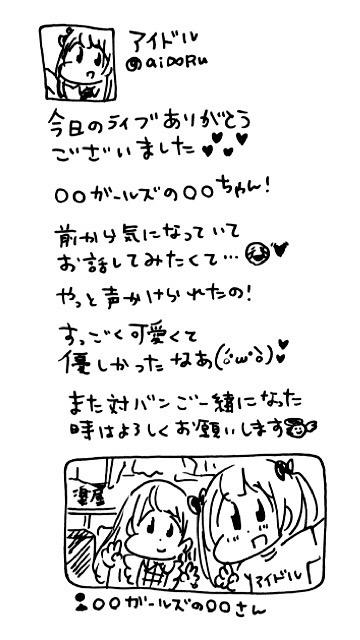 アイドル
@aiDoRu
今日のライブありがとう
ございました♥♥♥
○○ガールズの○○ちゃん!
前から気になっていて
お話してみたくて…😂♥
やっと声かけられたの!
すっごく可愛くて
優しかったなあ(´;ω;`)♥
また対バンご一緒になった
時はよろしくお願いします
楽屋
アイドル
○○ガールズの○○さん